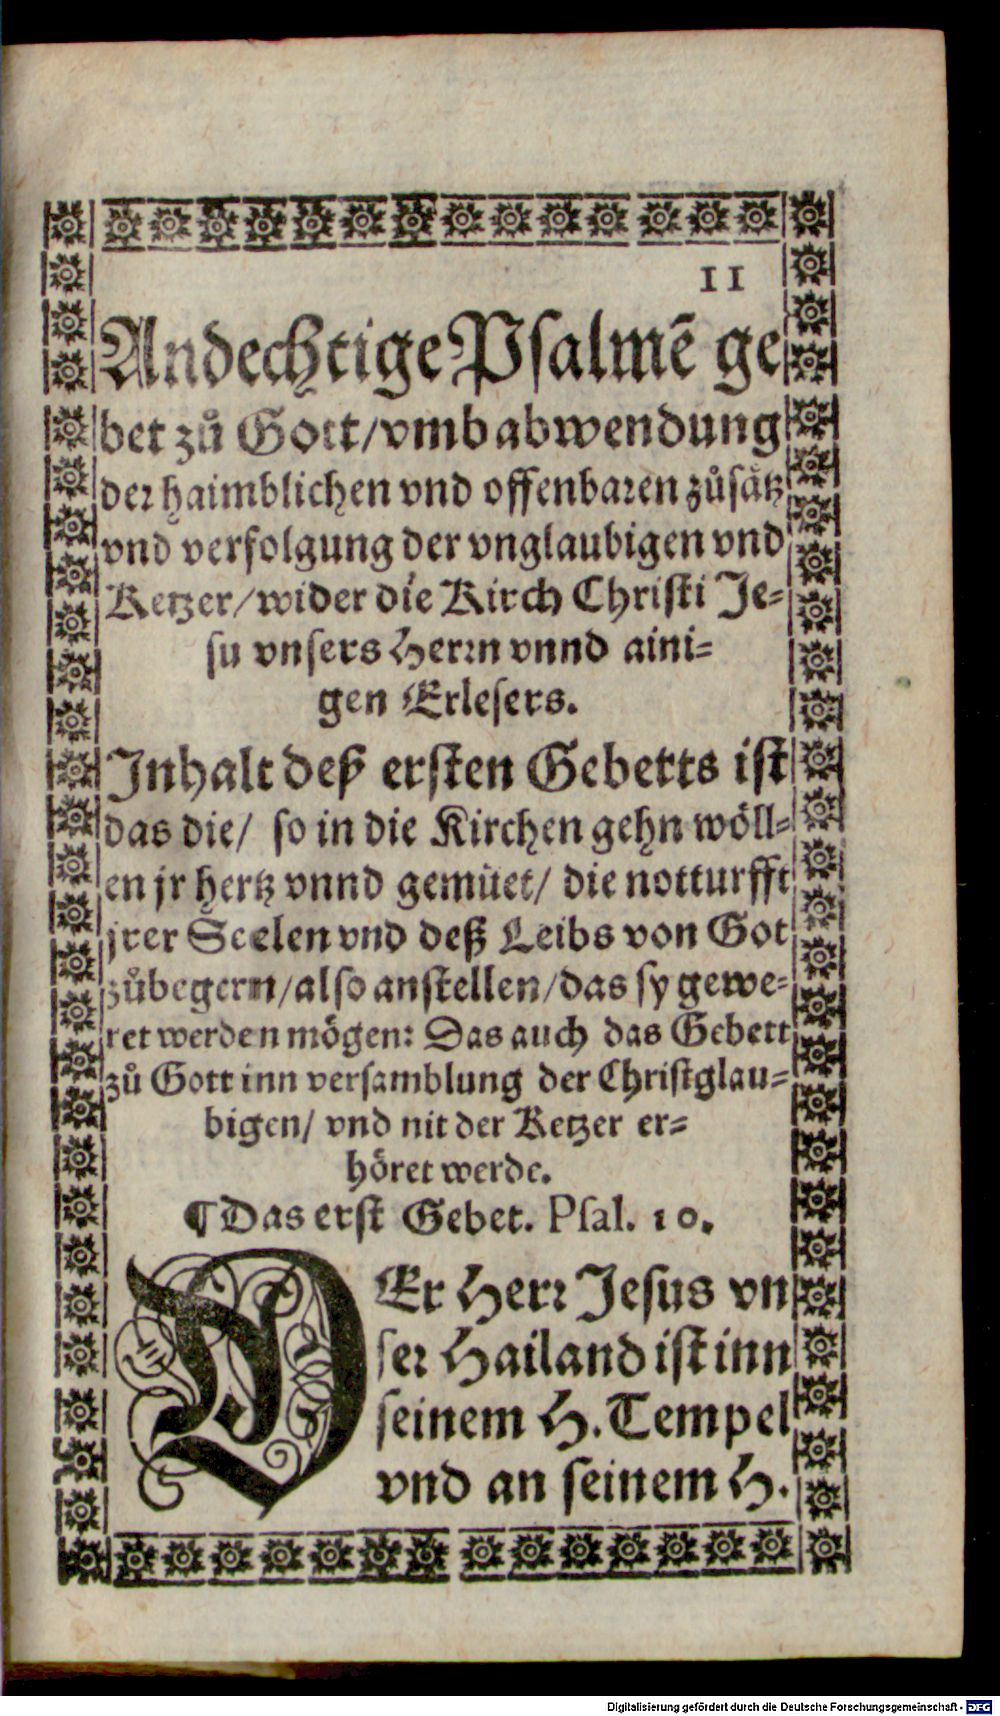 11
Andechtige Psalmē ge
bet zů Gott/vmb abwendung
der haimblichen vnd offenbaren zůsätz
vnd verfolgung der vnglaubigen vnd
Ketzer/wider die Kirch Christi Je-
su vnsers Herrn vnnd aini-
gen Erlesers.
Inhalt deß ersten Gebetts ist
das die/ so in die Kirchen gehn wöll-
en jr hertz vnnd gemüet/ die notturfft
jrer Seelen vnd deß Leibs von Got
zůbegern/also anstellen/das sy gewe-
ret werden mögen: Das auch das Gebett
zů Gott inn versamblung der Christglau-
bigen/ vnd nit der Ketzer er-
höret werde.
¶Das erst Gebet. Psal. 10.
DEr Herr Jesus vn
ser Hailand ist inn
seinem H. Tempel
vnd an seinem H.
Digitalisierung gefördert durch die Deutsche Forschungsgemeinschaft - DFG